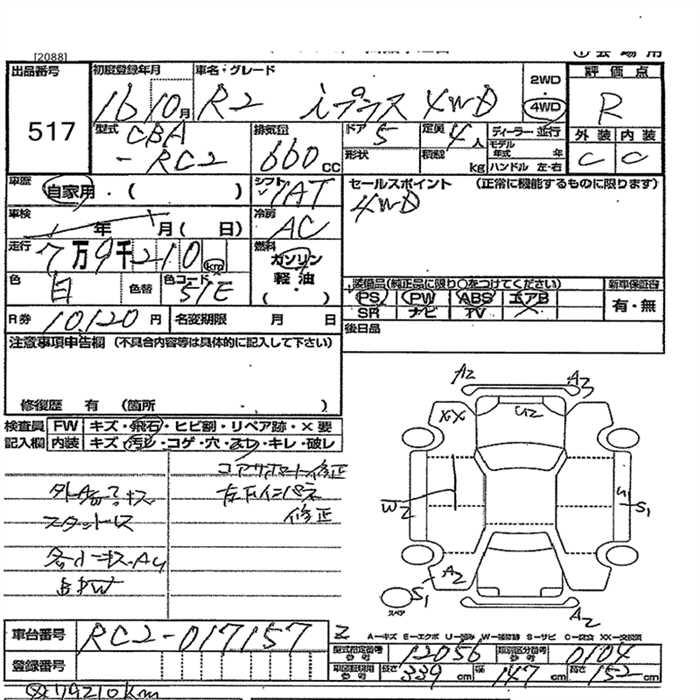 [2088]
出品番号 初度登録年月 車名・グレード 2WD 評価点
517 16 10月 R2 iプラス 4WD 4WD R
型式 CBA-RC2 排気量 660 CC ドア 5 定員 4人 ディーラー・並行 外装 内装
形状 積載 kg モデル年式 年 ハンドル 左・右 C C
車歴 自家用・( ) シフト AT セールスポイント (正常に機能するものに限ります)
4WD
車検 年 月( 日) 冷房 AC
走行 7万9千210 km 燃料 ガソリン
軽油
・( )
色 白 色替 色コード 51E
装備品(純正品に限り○をつけてください) 新車保証書
PS PW ABS エアB 有・無
SR ナビ TV
R券 10,120円 名変期限 月 日 後日品
注意事項申告欄(不具合内容等は具体的に記入して下さい)
修復歴 有 (箇所 )
検査員 FW キズ・飛石・ヒビ割・リペア跡・×要
記入欄 内装 キズ・汚レ・コゲ・穴・スレ・キレ・破レ
コアサポート修正
スタットレス
修正
A2 A2
XX U2
W2
U1 S1
A2 S1
スペア
A2
車台番号 RC2-017157
登録番号
A-キズ E-エクボ U-凹み W-補修跡 S-サビ C-腐食 XX-交換済
型式指定番号 参考 12056 類別区分番号 参考 0104
長さ 339 cm 幅 147 cm 高さ 152 cm
79210km